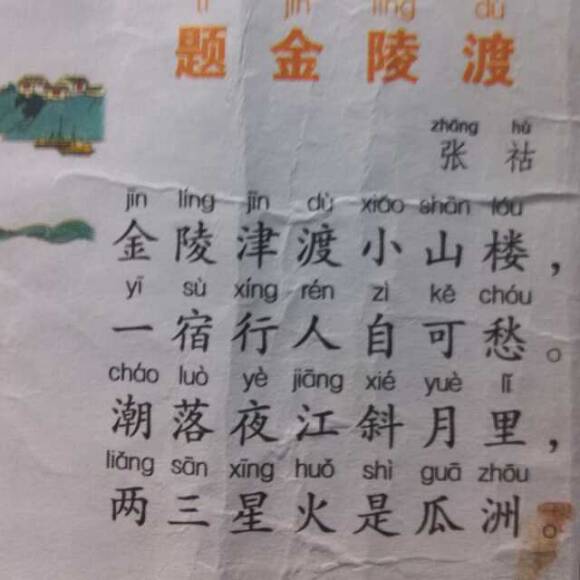 tí jīn líng dù
题金陵渡
zhāng hù
张祜
jīn líng jīn dù xiǎo shān lóu
金陵津渡小山楼，
yī sù xíng rén zì kě chóu
一宿行人自可愁。
cháo luò yè jiāng xié yuè lǐ
潮落夜江斜月里，
liǎng sān xīng huǒ shì guā zhōu
两三星火是瓜洲。